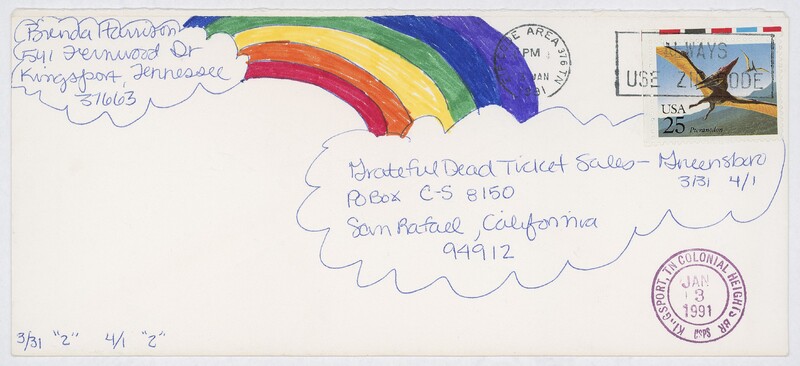 Brenda Harrison
541 Fernwood Dr
Kingsport, Tennessee
37663
AREA 376 TN
PM
JAN
1991
ALWAYS
USE ZIP CODE
USA
25 Pteranodon
Grateful Dead Ticket Sales – Greensboro
3/31 4/1
PO Box C-S 8150
San Rafael, California
94912
KINGSPORT, TN COLONIAL HEIGHTS BR
JAN
3
1991
USPS
3/31 "2" 4/1 "2"